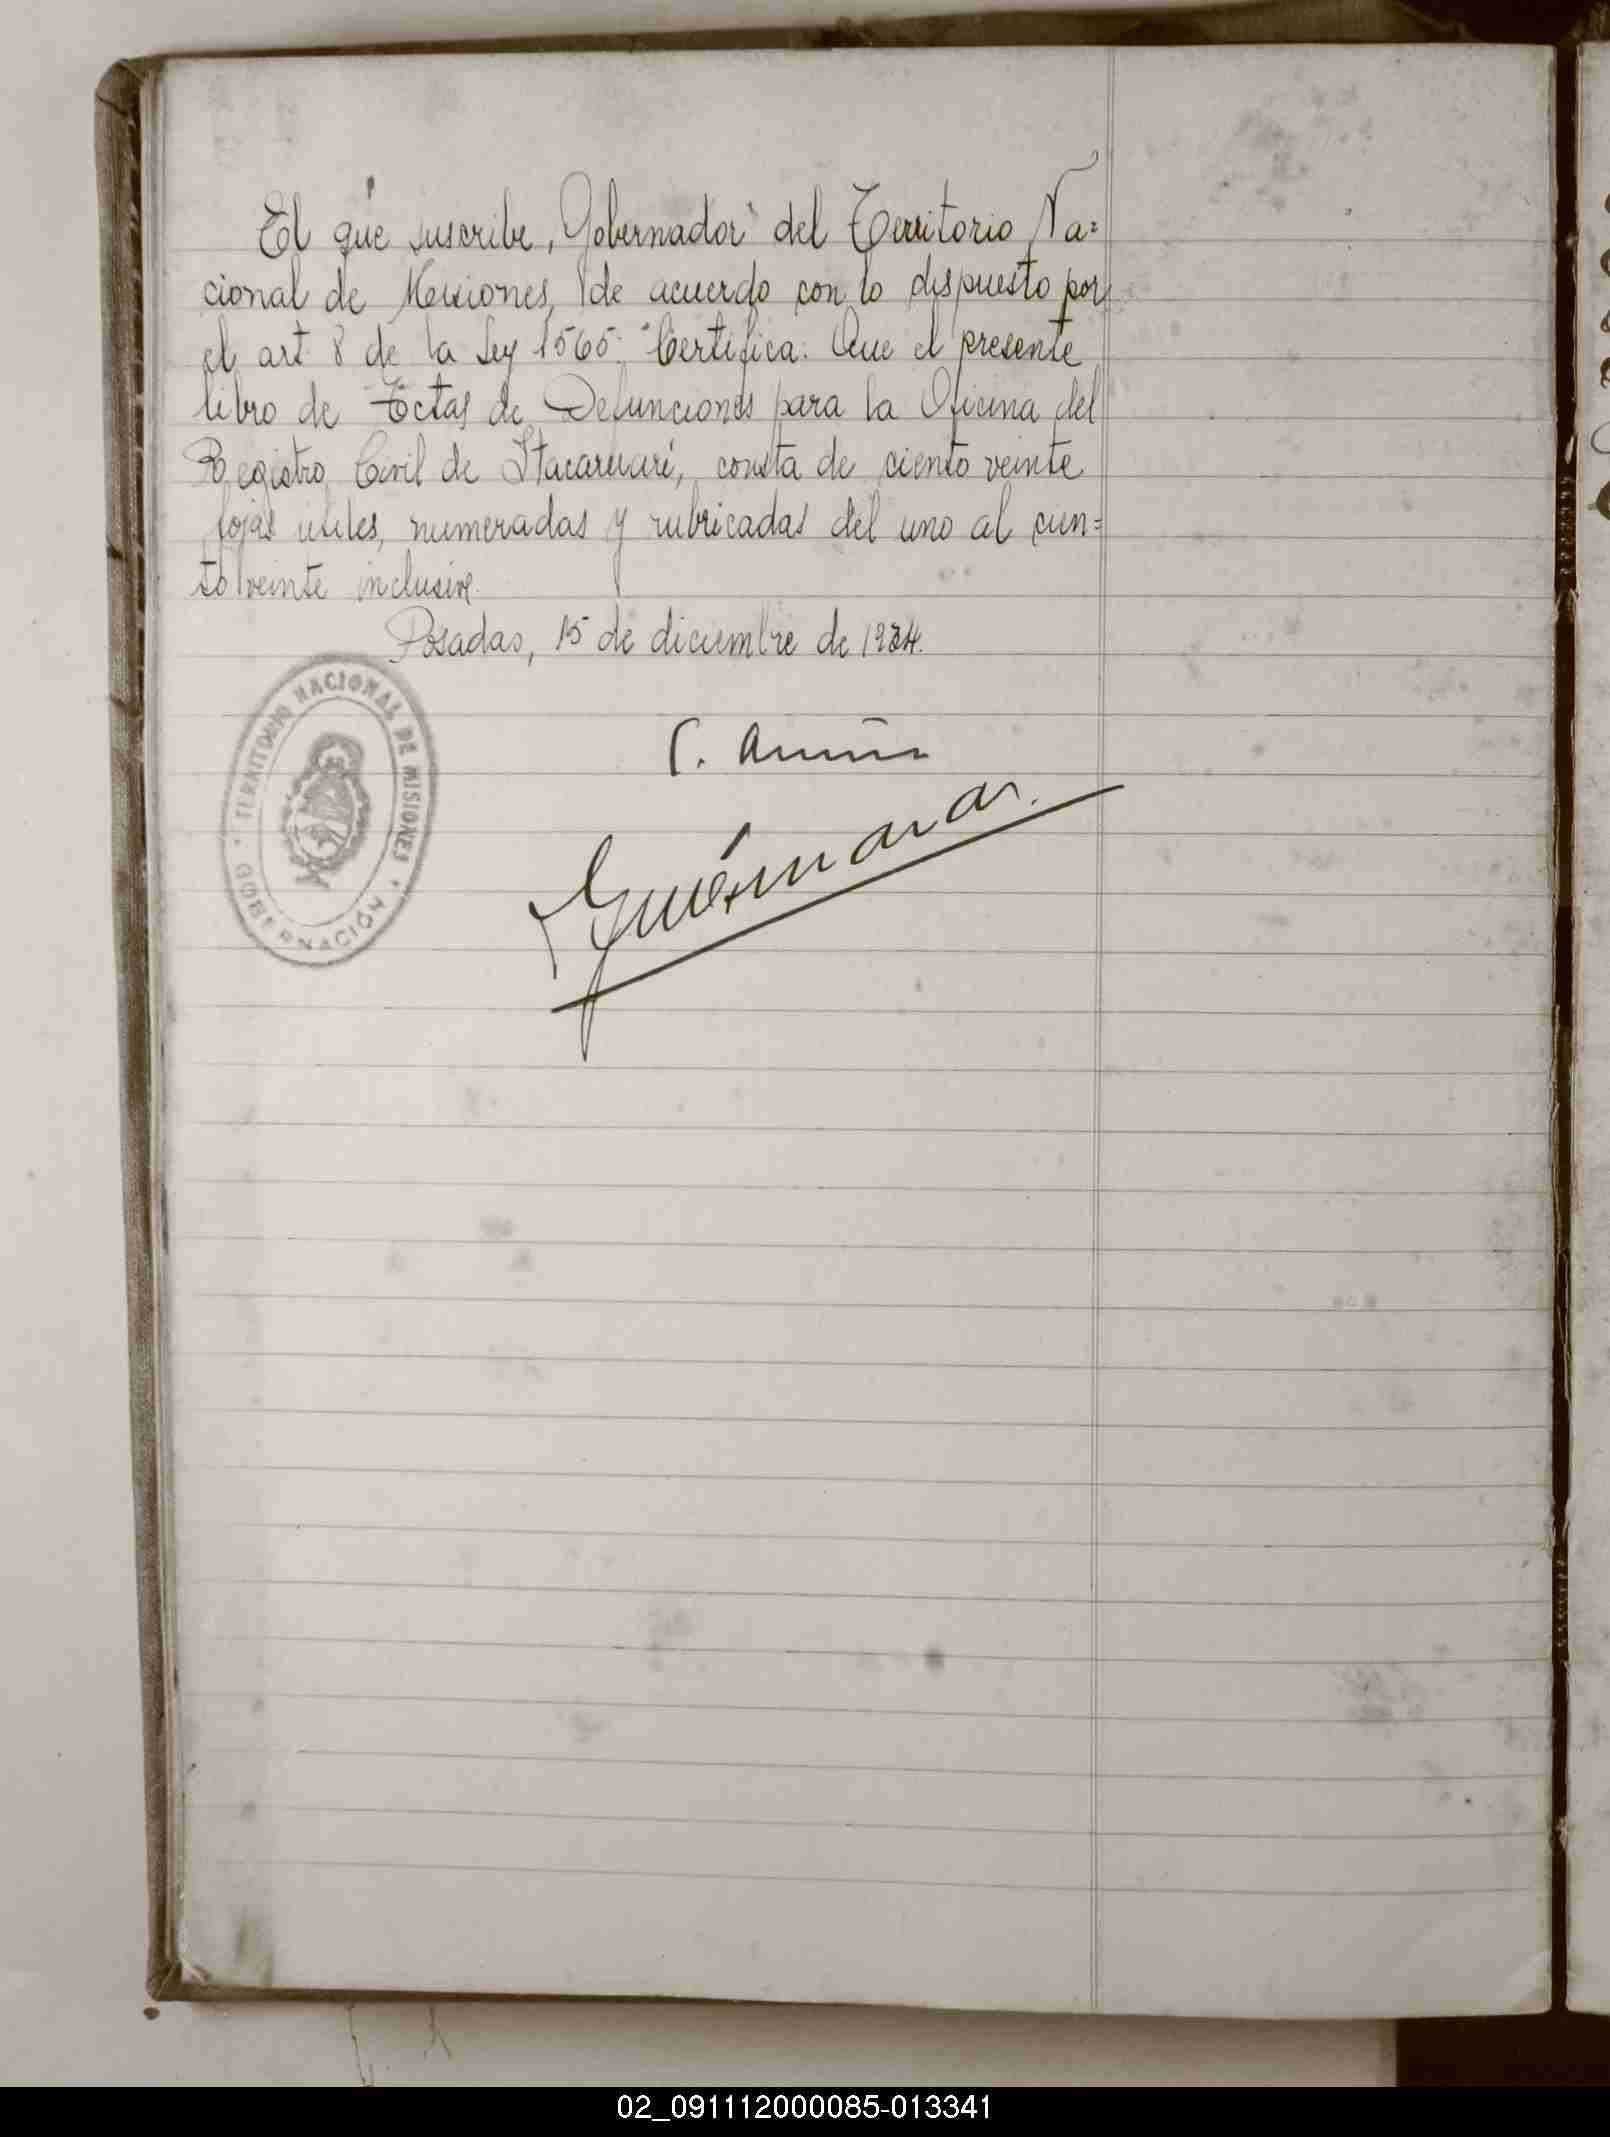 El que suscribe, Gobernador del Territorio Na=
cional de Misiones, de acuerdo con lo dispuesto por
el art. 8 de la Ley 1565: Certifica: Que el presente
libro de Actas de Defunciones para la Oficina del
Registro Civil de Itacaruaré, consta de ciento veinte
fojas útiles, numeradas y rubricadas del uno al cien=
to veinte inclusive.
Posadas, 15 de diciembre de 1934.
TERRITORIO NACIONAL DE MISIONES
GOBERNACIÓN
02_091112000085-013341